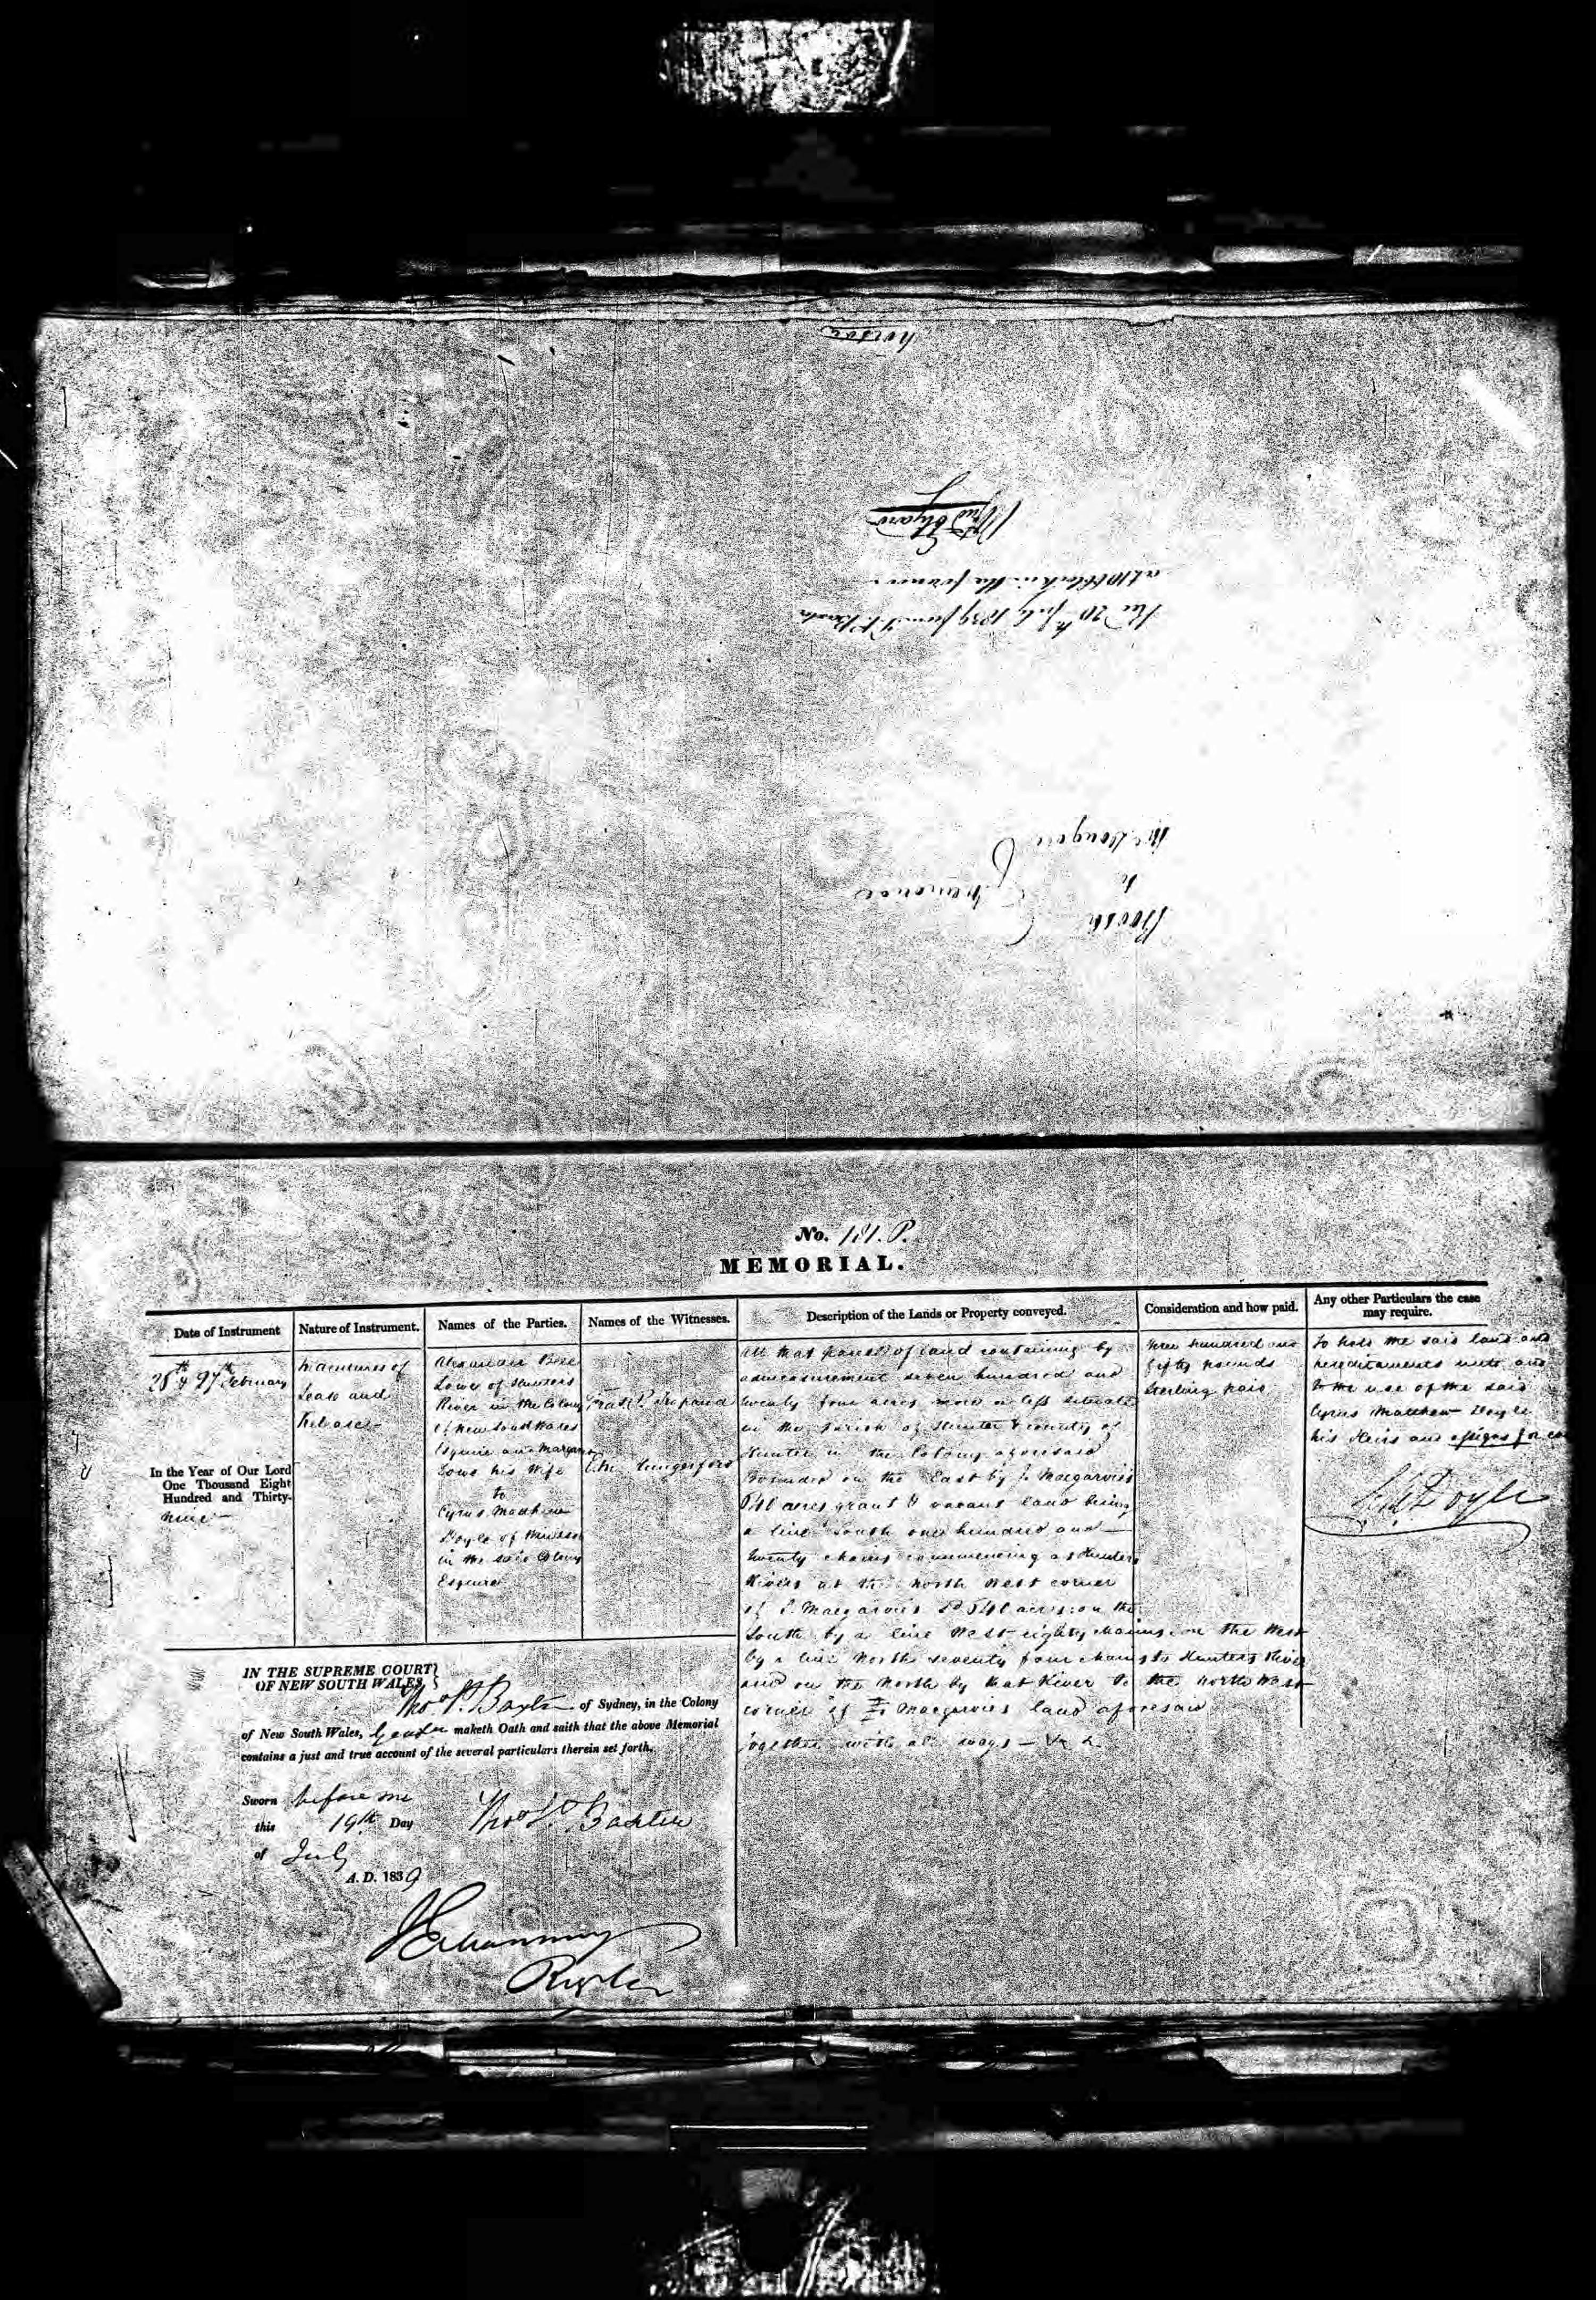 Booth
to
Memorial
Rec'd 20th July 1839 from T. P. Baxter
at 10 o'Clock in the forenoon
No. 181. P.
MEMORIAL.
Date of Instrument
26th & 27th February
In the Year of Our Lord
One Thousand Eight
Hundred and Thirty-
nine
Nature of Instrument.
Indentures of
Lease and
Release
Names of the Parties.
Alexander
Lowe of Hunters
River in the Colony
of New South Wales
Esquire and Margaret
Lowe his Wife
to
Cyrus Matthew
Doyle of
in the said Colony
Esquire
Names of the Witnesses.
Hungerford
Description of the Lands or Property conveyed.
All that parcel of land containing by
admeasurement seven hundred and
twenty four acres more or less situate
in the Parish of Hunter & County of
Hunter in the Colony aforesaid
Bounded on the East by J. Macgarvie's
540 acres grant & vacant land being
a line South one hundred and
twenty chains commencing at Hunters
River at the North West corner
of J. Macgarvie's 540 acres: on the
South by a line West eighty chains: on the West
by a line North seventy four chains to Hunters River
and on the North by that River to the North West
corner of J. Macgarvie's land aforesaid
together with all ways &c &c
Consideration and how paid.
hundred and
fifty pounds
Sterling paid
Any other Particulars the case
may require.
To hold the said land and
hereditaments unto and
to the use of the said
Cyrus Matthew Doyle
his Heirs and assigns for ever
Doyle
IN THE SUPREME COURT
OF NEW SOUTH WALES,
Thos. P. Baxter of Sydney, in the Colony
of New South Wales, maketh Oath and saith that the above Memorial
contains a just and true account of the several particulars therein set forth.
Sworn before me
this 19th Day
of July
A. D. 1839
Thos. P. Baxter
J E Manning
Registrar